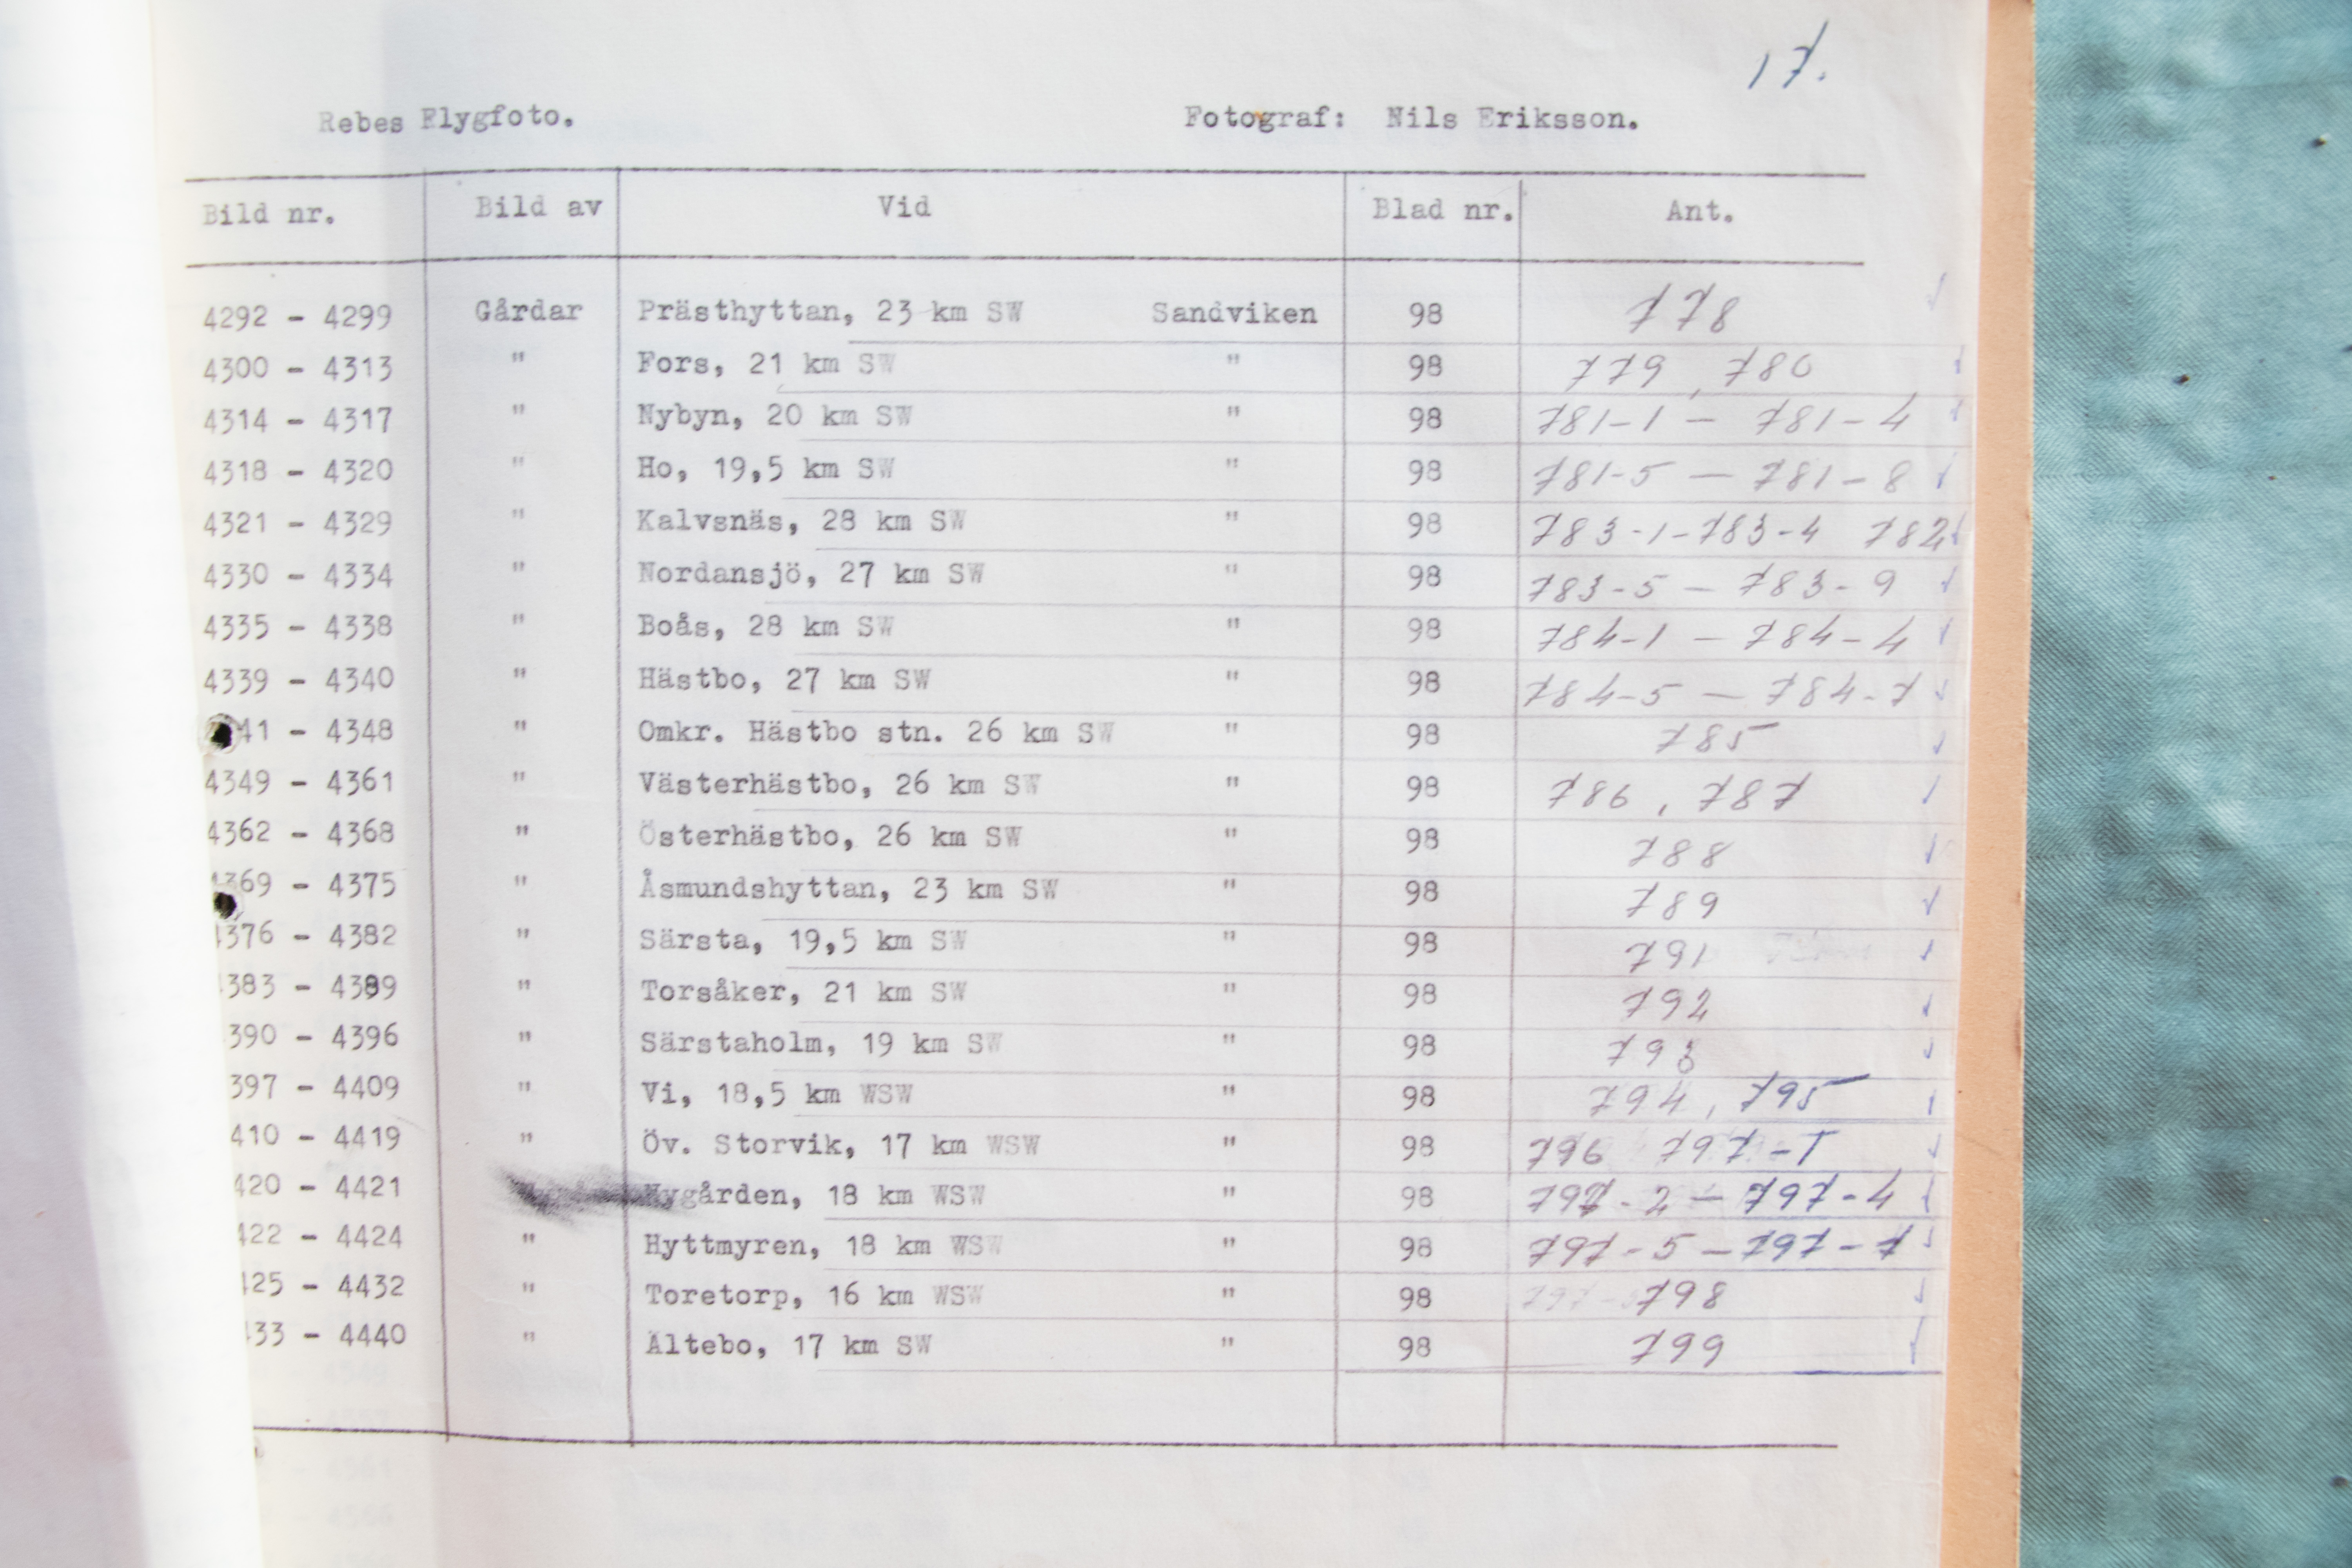 17.
Rebes Flygfoto. Fotograf: Nils Eriksson.
Bild nr. Bild av Vid Blad nr. Ant.
4292 - 4299 Gårdar Prästhyttan, 23 km SW Sandviken 98 778 ✓
4300 - 4313 " Fors, 21 km SW " 98 779, 780 ✓
4314 - 4317 " Nybyn, 20 km SW " 98 781-1 - 781-4 ✓
4318 - 4320 " Ho, 19,5 km SW " 98 781-5 - 781-8 ✓
4321 - 4329 " Kalvsnäs, 28 km SW " 98 783-1-783-4 782 ✓
4330 - 4334 " Nordansjö, 27 km SW " 98 783-5 - 783-9 ✓
4335 - 4338 " Boås, 28 km SW " 98 784-1 - 784-4 ✓
4339 - 4340 " Hästbo, 27 km SW " 98 784-5 - 784-7 ✓
41 - 4348 " Omkr. Hästbo stn. 26 km SW " 98 785 ✓
4349 - 4361 " Västerhästbo, 26 km SW " 98 786, 787 ✓
4362 - 4368 " Österhästbo, 26 km SW " 98 788 ✓
4369 - 4375 " Åsmundshyttan, 23 km SW " 98 789 ✓
4376 - 4382 " Särsta, 19,5 km SW " 98 791 ✓
383 - 4389 " Torsåker, 21 km SW " 98 792 ✓
390 - 4396 " Särstaholm, 19 km SW " 98 793 ✓
397 - 4409 " Vi, 18,5 km WSW " 98 794, 795 ✓
410 - 4419 " Öv. Storvik, 17 km WSW " 98 796 797-1 ✓
420 - 4421 Nygården, 18 km WSW " 98 797-2 - 797-4 ✓
422 - 4424 " Hyttmyren, 18 km WSW " 98 797-5 - 797-7 ✓
425 - 4432 " Toretorp, 16 km WSW " 98 798 ✓
433 - 4440 " Ältebo, 17 km SW " 98 799 ✓